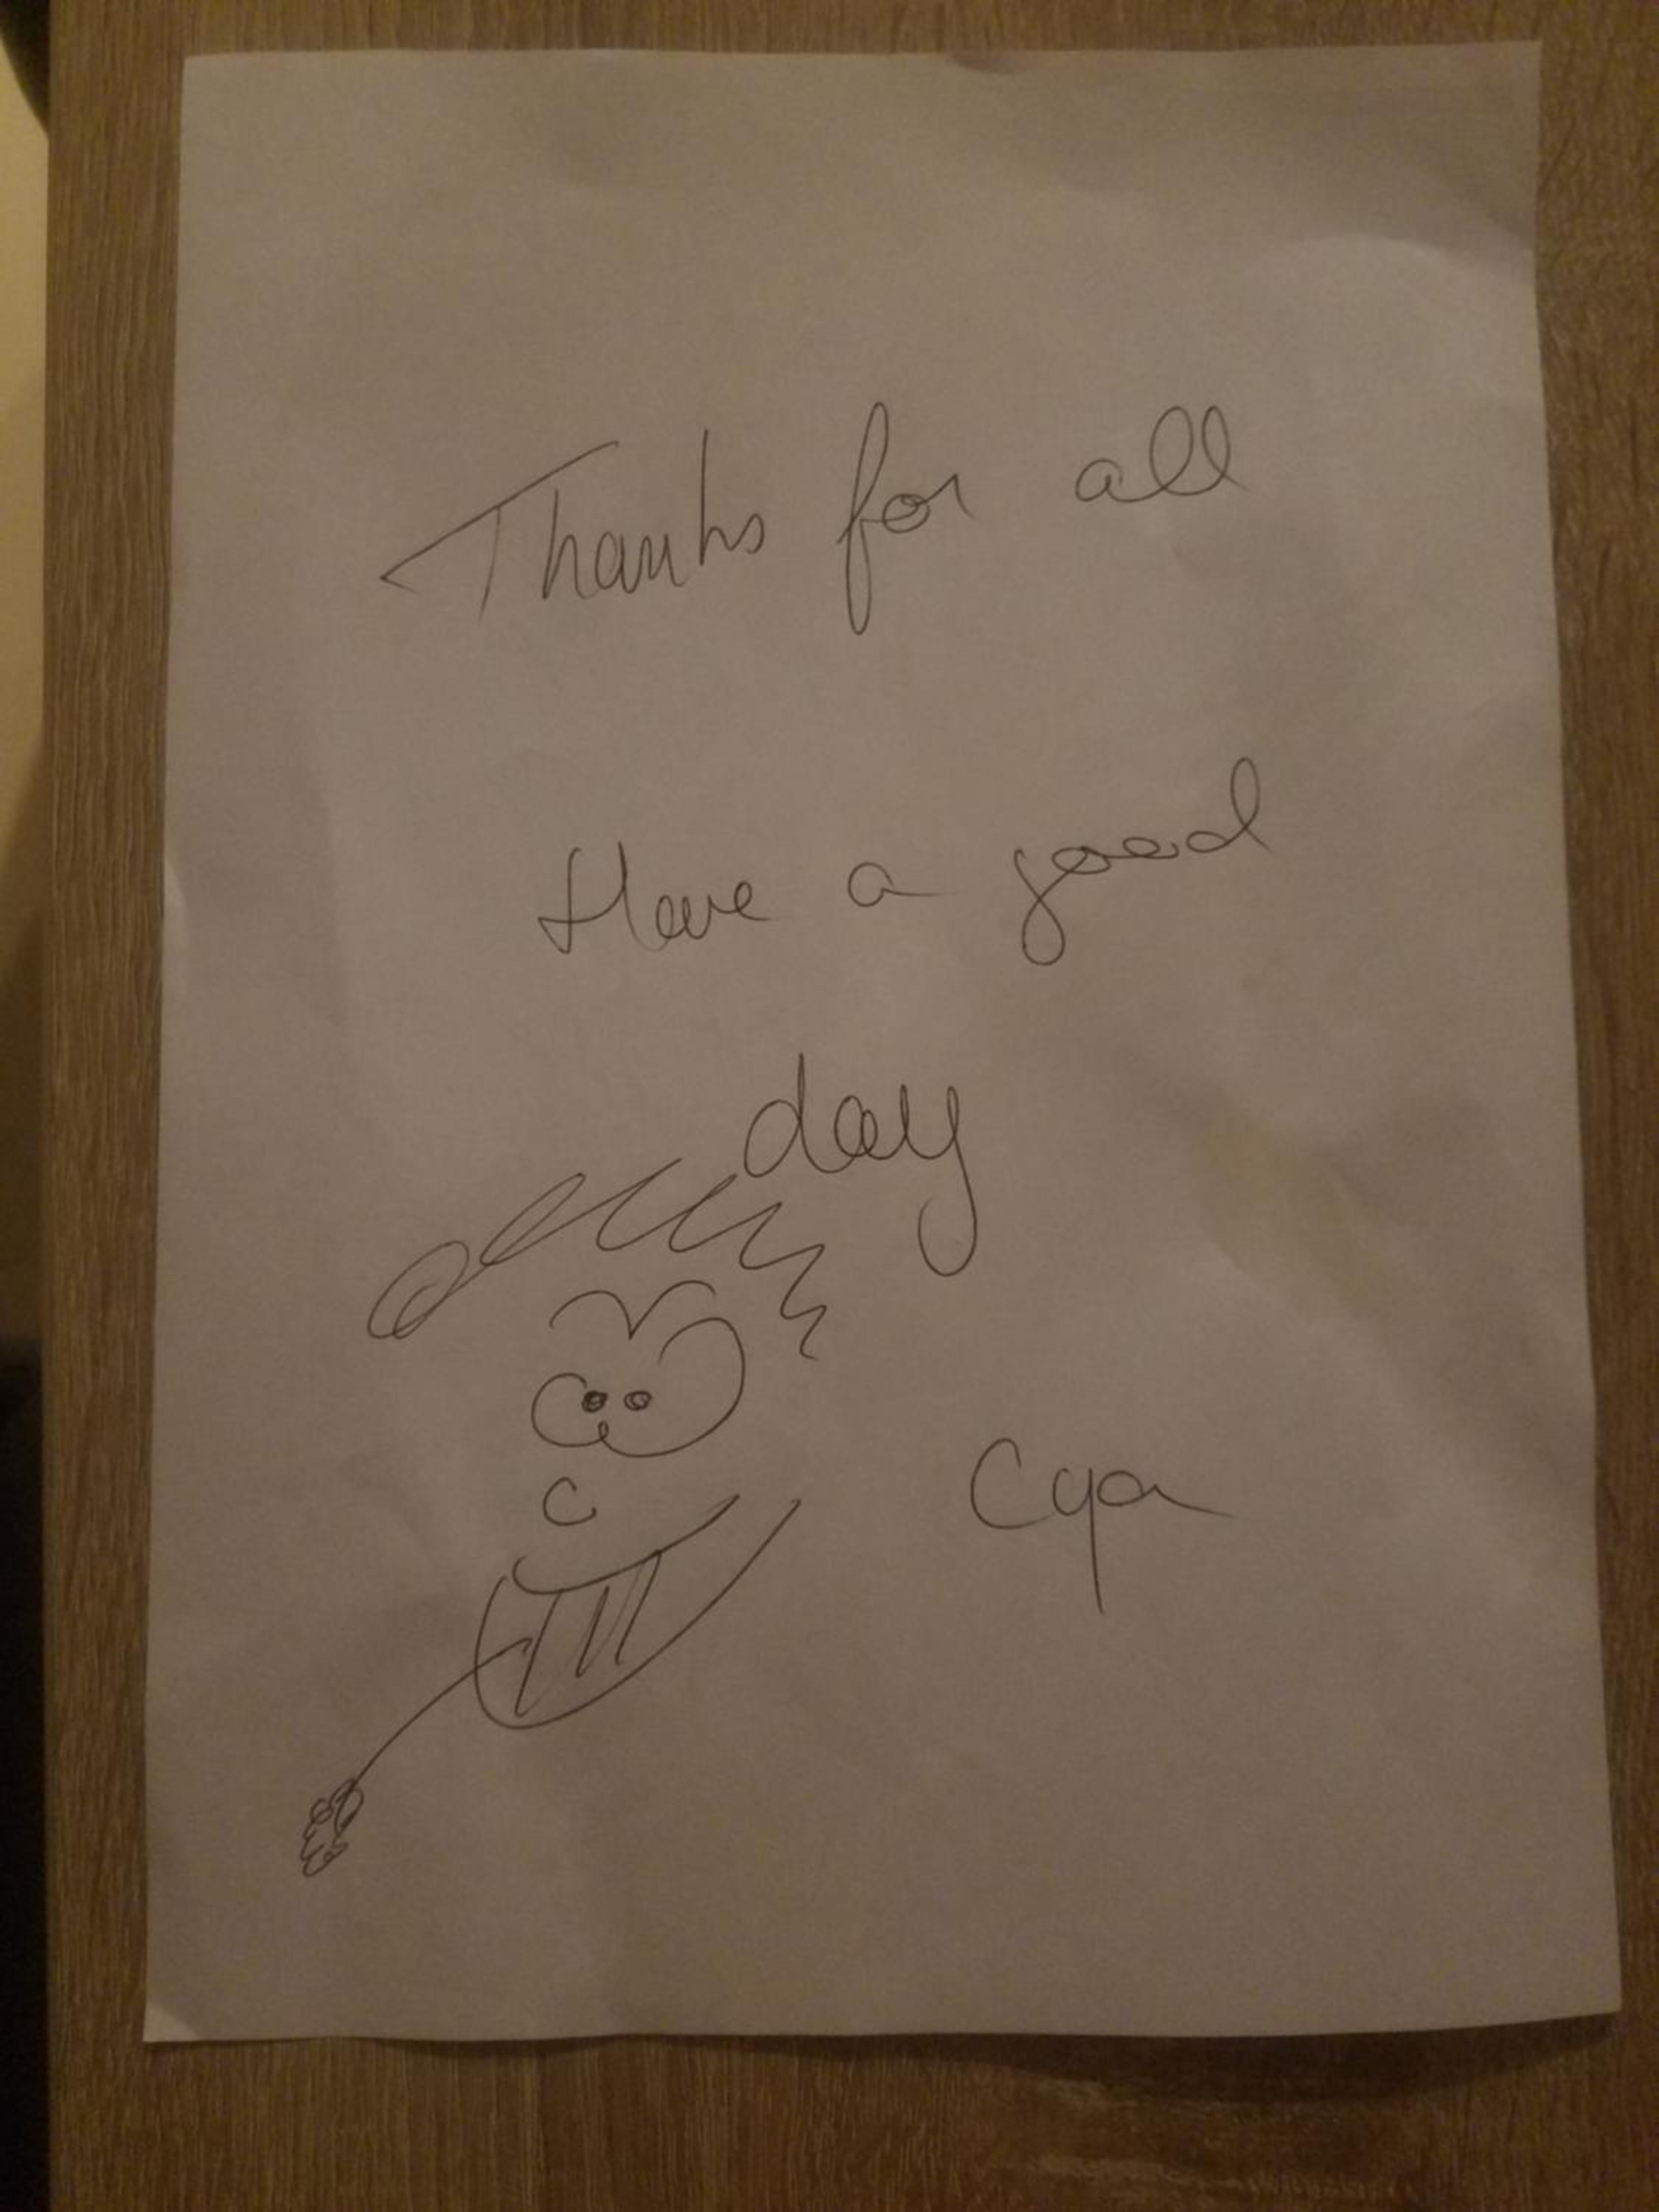 Thanks for all
Have a good
day
Cya